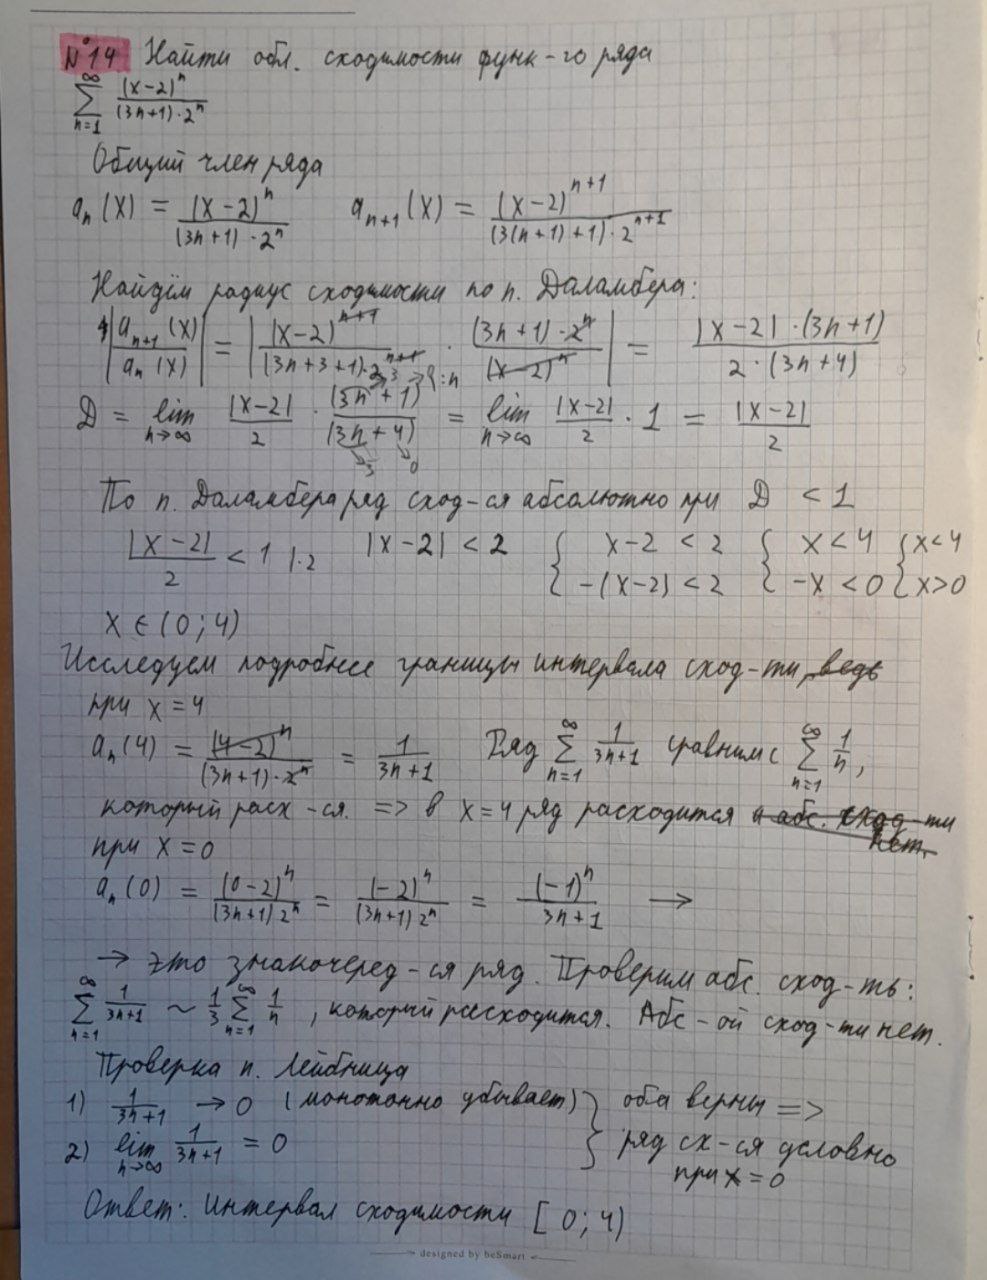 №14 Найти обл. сходимости функ-го ряда
∑_{n=1}^{∞} (x-2)^n / ((3n+1)·2^n)
Общий член ряда
a_n(x) = (x-2)^n / ((3n+1)·2^n)   a_{n+1}(x) = (x-2)^{n+1} / ((3(n+1)+1)·2^{n+1})
Найдём радиус сходимости по п. Даламбера:
|a_{n+1}(x) / a_n(x)| = |(x-2)^{n+1} / ((3n+3+1)·2^{n+1}) · (3n+1)·2^n / (x-2)^n| = |x-2|·(3n+1) / (2·(3n+4))
D = lim_{n→∞} |x-2|/2 · (3n+1)/(3n+4) = lim_{n→∞} |x-2|/2 · 1 = |x-2|/2
→3 →0 :n
→3 →0
По п. Даламбера ряд сход-ся абсолютно при D < 1
|x-2|/2 < 1 |·2   |x-2| < 2   { x-2 < 2   { x < 4   { x < 4
{ -(x-2) < 2   { -x < 0   { x > 0
x ∈ (0; 4)
Исследуем подробнее границы интервала сход-ти, ведь
при x = 4
a_n(4) = (4-2)^n / ((3n+1)·2^n) = 1/(3n+1)   Ряд ∑_{n=1}^{∞} 1/(3n+1) сравним с ∑_{n=1}^{∞} 1/n,
который расх-ся. => в x = 4 ряд расходится и абс. сход-ти
нет.
при x = 0
a_n(0) = (0-2)^n / ((3n+1) 2^n) = (-2)^n / ((3n+1) 2^n) = (-1)^n / (3n+1) →
→ это знакочеред-ся ряд. Проверим абс. сход-ть:
∑_{n=1}^{∞} 1/(3n+1) ~ 1/3 ∑_{n=1}^{∞} 1/n, который расходится. Абс-ой сход-ти нет.
Проверка п. Лейбница
1) 1/(3n+1) → 0 (монотонно убывает) } оба верны =>
2) lim_{n→∞} 1/(3n+1) = 0 } ряд сх-ся условно
при x = 0
Ответ: Интервал сходимости [0; 4)
designed by beSmart